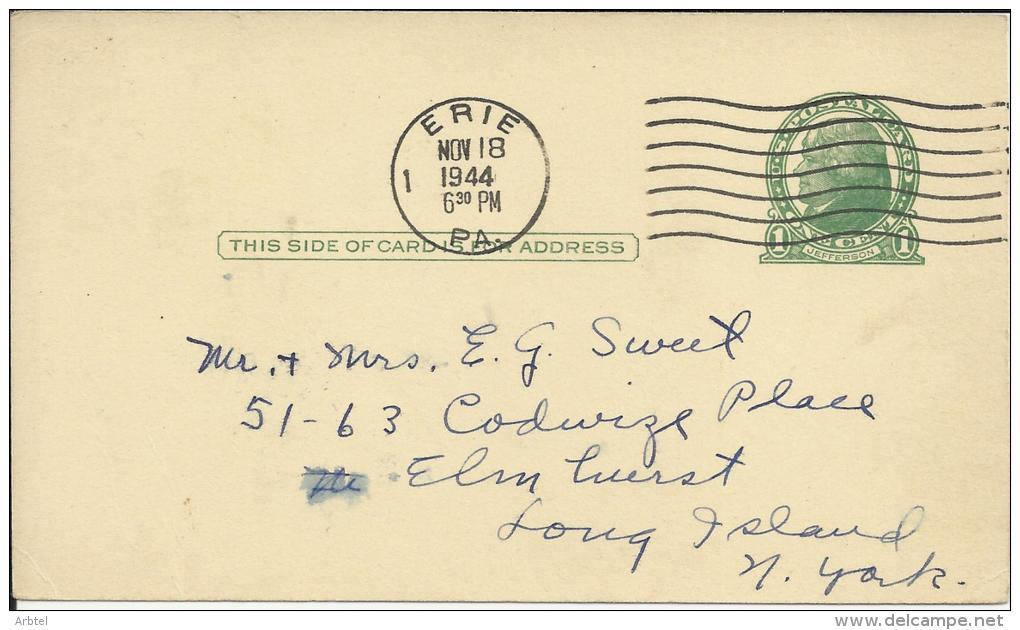 ERIE
NOV 18
1 1944
6 30 PM
PA.
U.S. POSTAL CARD
1 JEFFERSON 1
THIS SIDE OF CARD IS FOR ADDRESS
Mr. + Mrs. E. G. Sweet
51-63 Codwize Place
Elmhurst
Long Island
N. York.
Arbtel
delcampe.net